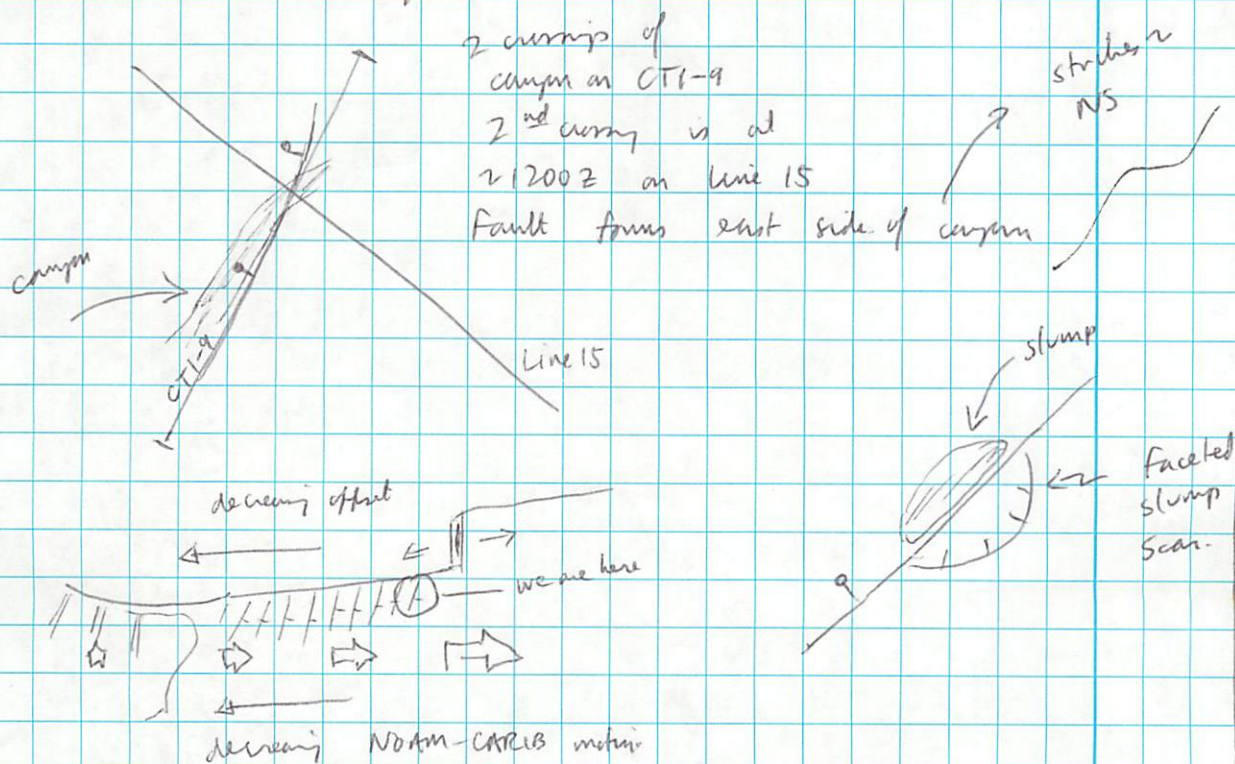 2 crossings of
canyon on CT1-9
2nd crossing is at
~1200Z on Line 15
Fault forms east side of canyon
strikes ~
NS
canyon
CT1-9
Line 15
slump
Faceted
slump
scar.
decreasing offset
we are here
decreasing NOAM-CARIB motion